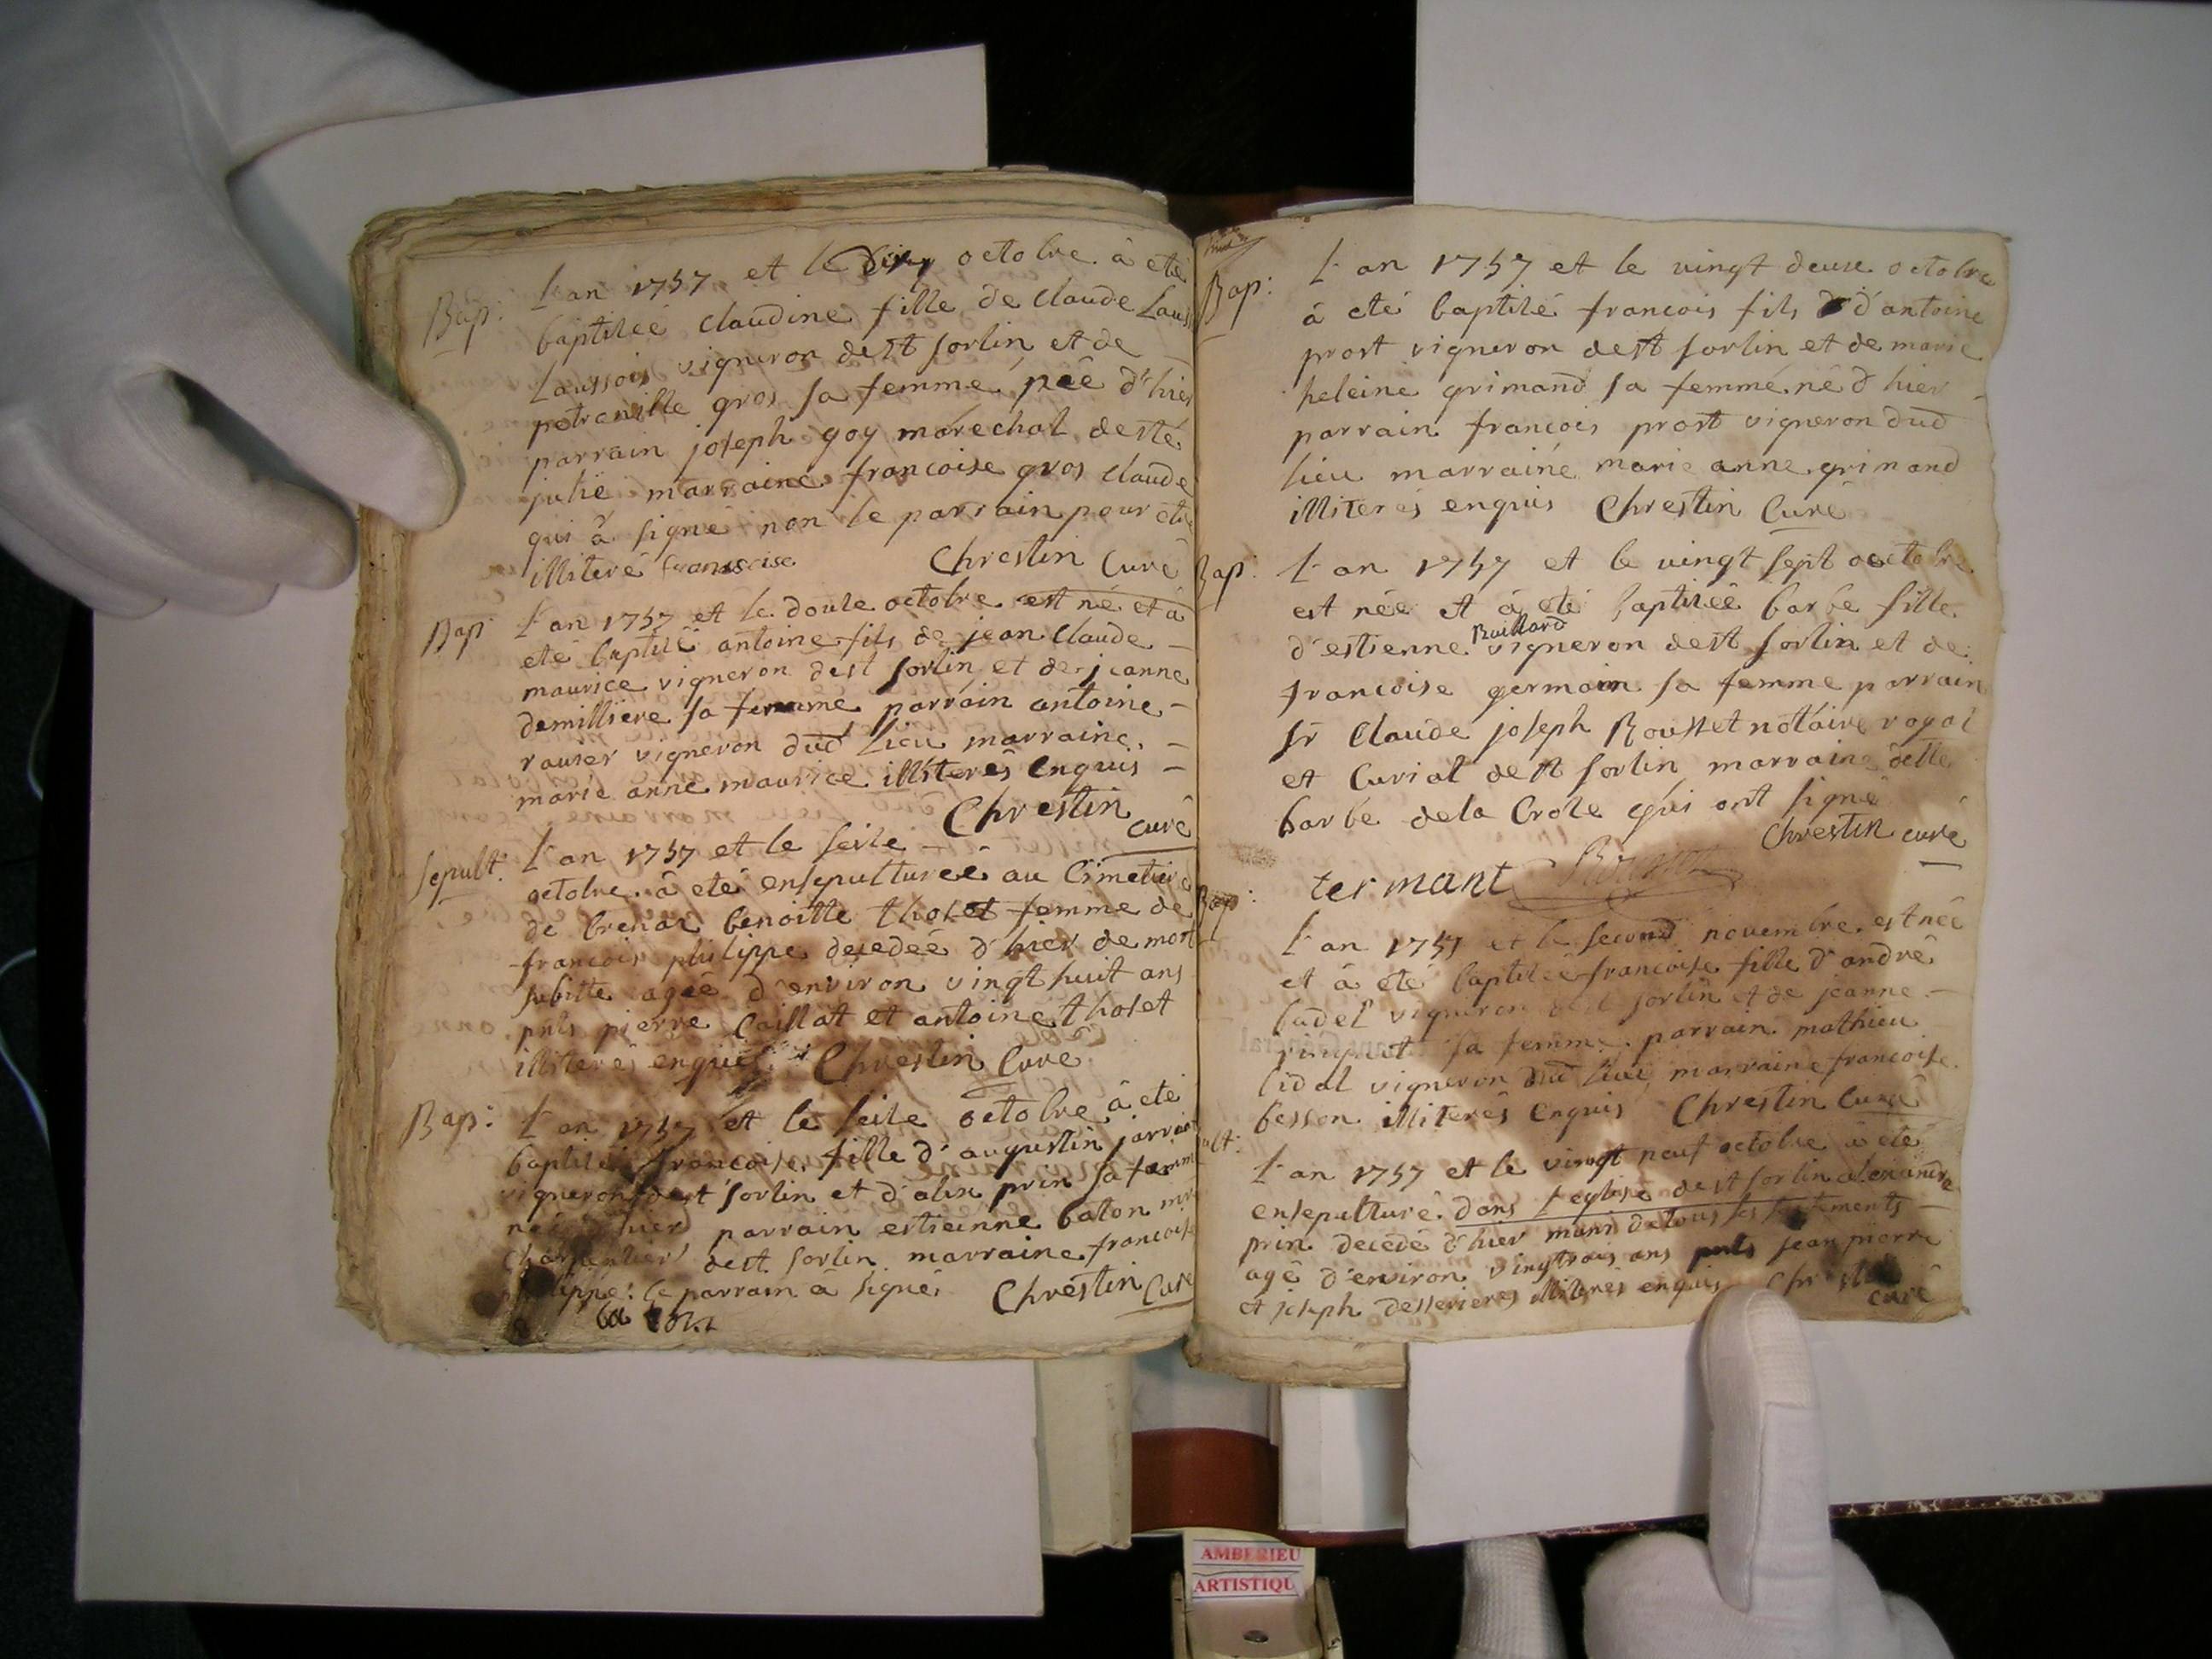 Bap: L'an 1757 et le dix octobre à eté
baptisée claudine fille de claude
Laussois vigneron de st sorlin et de
petronille gros sa femme née d'hier
parrain joseph goy maréchal de ste
julie marraine francoise gros claude
qui à signé non le parrain pour etre
illiteré francoise Chrestin Curé
Bap: L'an 1757 et le douze octobre est né et à
eté baptisé antoine fils de jean claude
maurice vigneron de st sorlin et de jeanne
demilliere sa femme parrain antoine
ravier vigneron dud lieu marraine
marie anne maurice illiterés enquis
Chrestin
curé
sepult: L'an 1757 et le seize
octobre à eté ensepulturée au Cimetiere
de brenaz benoitte tholet femme de
francois philippe decedeé d'hier de mort
subitte ageé d'environ vingt huit ans
pnts pierre Caillat et antoine tholet
illiterés enquis Chrestin Curé
Bap: L'an 1757 et le seize octobre à eté
baptisée francoise fille d'augustin
vigneron de st sorlin et d'alix prin sa femme
née d'hier parrain estienne baton
charpentier de st sorlin marraine francoise
philippe: le parrain à signé Chrestin Curé
baton
Bap: L'an 1757 et le vingt deux octobre
à eté baptisé francois fils d'antoine
prost vigneron de st sorlin et de marie
heleine grimand sa femme né d'hier
parrain francois prost vigneron dud
lieu marraine marie anne grimand
illiterés enquis Chrestin Curé
Bap: L'an 1757 et le vingt sept octobre
est née et à eté baptisée barbe fille
d'estienne Buillard vigneron de st sorlin et de
francoise germain sa femme parrain
sr Claude joseph Rousset notaire royal
et Curial de st sorlin marraine delle
barbe dela Croze qui ont signé
Chrestin curé
termant
Bap: L'an 1757 et le second novembre est née
et à eté baptisée francoise fille d'andré
budel vigneron de st sorlin et de jeanne
sa femme parrain mathieu
vigneron dud lieu marraine francoise
besson illiterés enquis Chrestin Curé
L'an 1757 et le vingt neuf octobre à eté
ensepulturé dans l'eglise de st sorlin alexandre
prin decedé d'hier muni de tous ses sacrements
agé d'environ vingt trois ans pnts jean pierre
et joseph desserieres illiterés enquis Chrestin
curé
AMBERIEU
ARTISTIQU